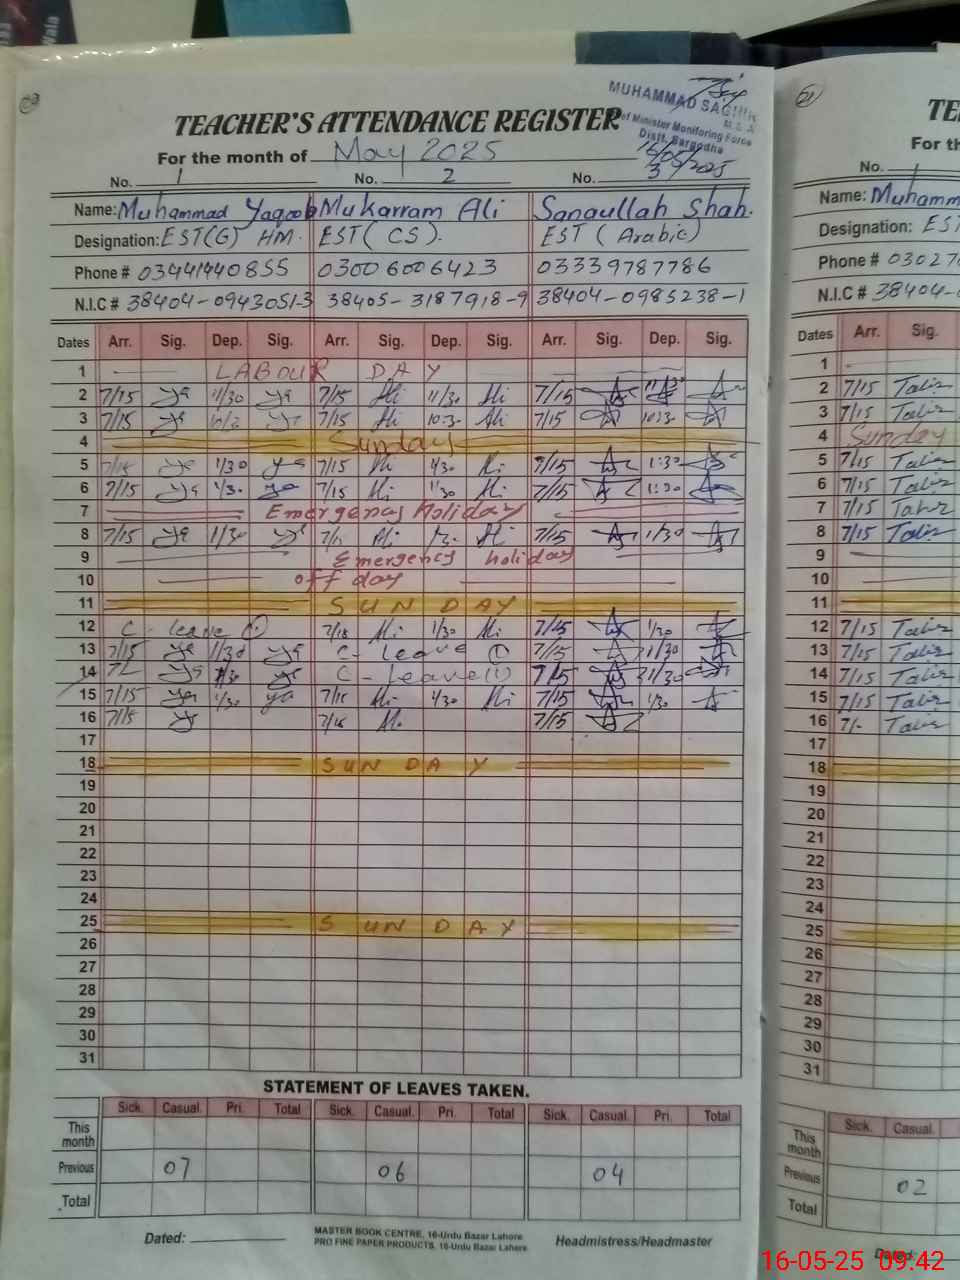 TEACHER'S ATTENDANCE REGISTER
MUHAMMAD SAGHIR
Minister Monitoring Force
Distt. Sargodha
16/05/2025
For the month of May 2025
No. 1 No. 2 No. 3
Name: Muhammad Yaqoob Mukarram Ali Sanaullah Shah.
Designation: EST(G) HM. EST (CS). EST (Arabic)
Phone # 03441440855 03006006423 03339787786
N.I.C # 38404-0943051-3 38405-3187918-9 38404-0985238-1
Dates Arr. Sig. Dep. Sig. Arr. Sig. Dep. Sig. Arr. Sig. Dep. Sig.
1 LABOUR DAY
2 7/15 ya 11/30 ya 7/15 Ali 11/30 Ali 7/15 11/30
3 7/15 ya 7/15 Ali 10:30 Ali 7/15 10:30
4 Sunday
5 ya 1/30 ya 7/15 Ali 1/30 Ali 7/15 1:30
6 7/15 ya 1/30 ya 7/15 Ali 1/30 Ali 7/15 1:30
7 Emergency Holiday
8 7/15 ya 1/30 ya Ali Ali 7/15 1/30
9 Emergency holiday
10 off day
11 SUNDAY
12 C-leave 7/15 Ali 1/30 Ali 7/15 1/30
13 7/15 ya 1/30 ya C-leave 1 7/15 1/30
14 ya 1/30 ya C-leave (1) 7/15 1/30
15 7/15 ya 1/30 ya 7/15 Ali 1/30 Ali 7/15 1/30
16 7/15 ya 7/15 Ali 7/15
17
18 SUNDAY
19
20
21
22
23
24
25 SUNDAY
26
27
28
29
30
31
STATEMENT OF LEAVES TAKEN.
Sick. Casual. Pri. Total Sick. Casual. Pri. Total Sick. Casual. Pri. Total
This month
Previous 07 06 04
Total
Dated:
MASTER BOOK CENTRE, 16-Urdu Bazar Lahore
PRO FINE PAPER PRODUCTS, 16-Urdu Bazar Lahore
Headmistress/Headmaster
21
TE
For th
No. 1
Name: Muhamm
Designation: EST
Phone # 03027
N.I.C # 38404-
Dates Arr. Sig.
1
2 7/15 Tahir
3 7/15 Tahir
4 Sunday
5 7/15 Tahir
6 7/15 Tahir
7 7/15 Tahir
8 7/15 Tahir
9
10
11
12 7/15 Tahir
13 7/15 Tahir
14 7/15 Tahir
15 7/15 Tahir
16 Tahir
17
18
19
20
21
22
23
24
25
26
27
28
29
30
31
Sick. Casual.
This month
Previous 02
Total
Dated:
16-05-25 09:42